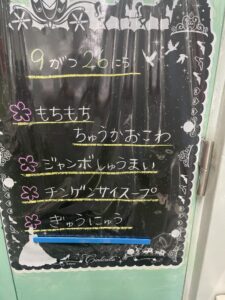 9がつ26にち
もちもち
ちゅうかおこわ
ジャンボしゅうまい
チンゲンサイスープ
ぎゅうにゅう
Cinderella